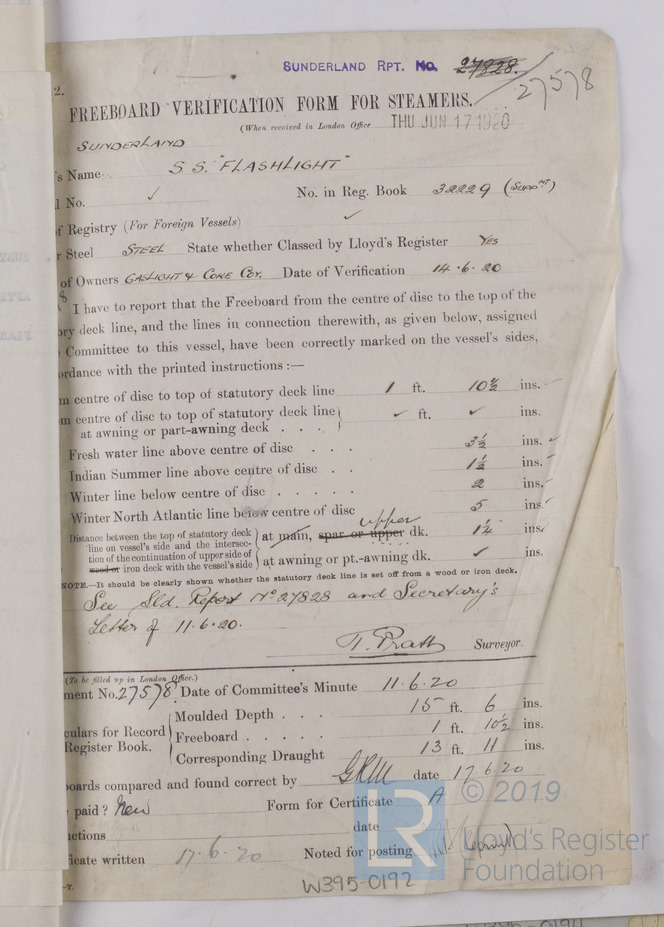 SUNDERLAND RPT. No. 27828.
27578
2.
FREEBOARD VERIFICATION FORM FOR STEAMERS.
(When received in London Office THU JUN 17 1920
SUNDERLAND
's Name S.S. "FLASHLIGHT"
l No. ✓ No. in Reg. Book 32229 (Suppmt)
of Registry (For Foreign Vessels) ✓
r Steel STEEL State whether Classed by Lloyd's Register YES
of Owners GASLIGHT & COKE COY. Date of Verification 14.6.20
I have to report that the Freeboard from the centre of disc to the top of the
ory deck line, and the lines in connection therewith, as given below, assigned
Committee to this vessel, have been correctly marked on the vessel's sides,
ordance with the printed instructions :—
m centre of disc to top of statutory deck line 1 ft. 10½ ins.
m centre of disc to top of statutory deck line ✓ ft. ✓ ins.
at awning or part-awning deck . . .
Fresh water line above centre of disc . . . 3½ ins.
Indian Summer line above centre of disc . . 1½ ins.
Winter line below centre of disc . . . . . 2 ins.
Winter North Atlantic line below centre of disc 5 ins.
upper
Distance between the top of statutory deck
line on vessel's side and the intersec- at main, spar or upper dk. 1¼ ins.
tion of the continuation of upper side of
wood or iron deck with the vessel's side at awning or pt.-awning dk. ✓ ins.
NOTE.—It should be clearly shown whether the statutory deck line is set off from a wood or iron deck.
See Sld. Report No 27828 and Secretary's
Letter of 11.6.20.
T. Pratt Surveyor.
(To be filled up in London Office.)
ment No. 27578 Date of Committee's Minute 11.6.20
Moulded Depth . . . 15 ft. 6 ins.
culars for Record Freeboard . . . . . 1 ft. 10½ ins.
Register Book.
Corresponding Draught 13 ft. 11 ins.
boards compared and found correct by GRM date 17.6.20
paid? New Form for Certificate A
uctions date
ficate written 17.6.20 Noted for posting
W395-0192
© 2019
LR Lloyd's Register
Foundation